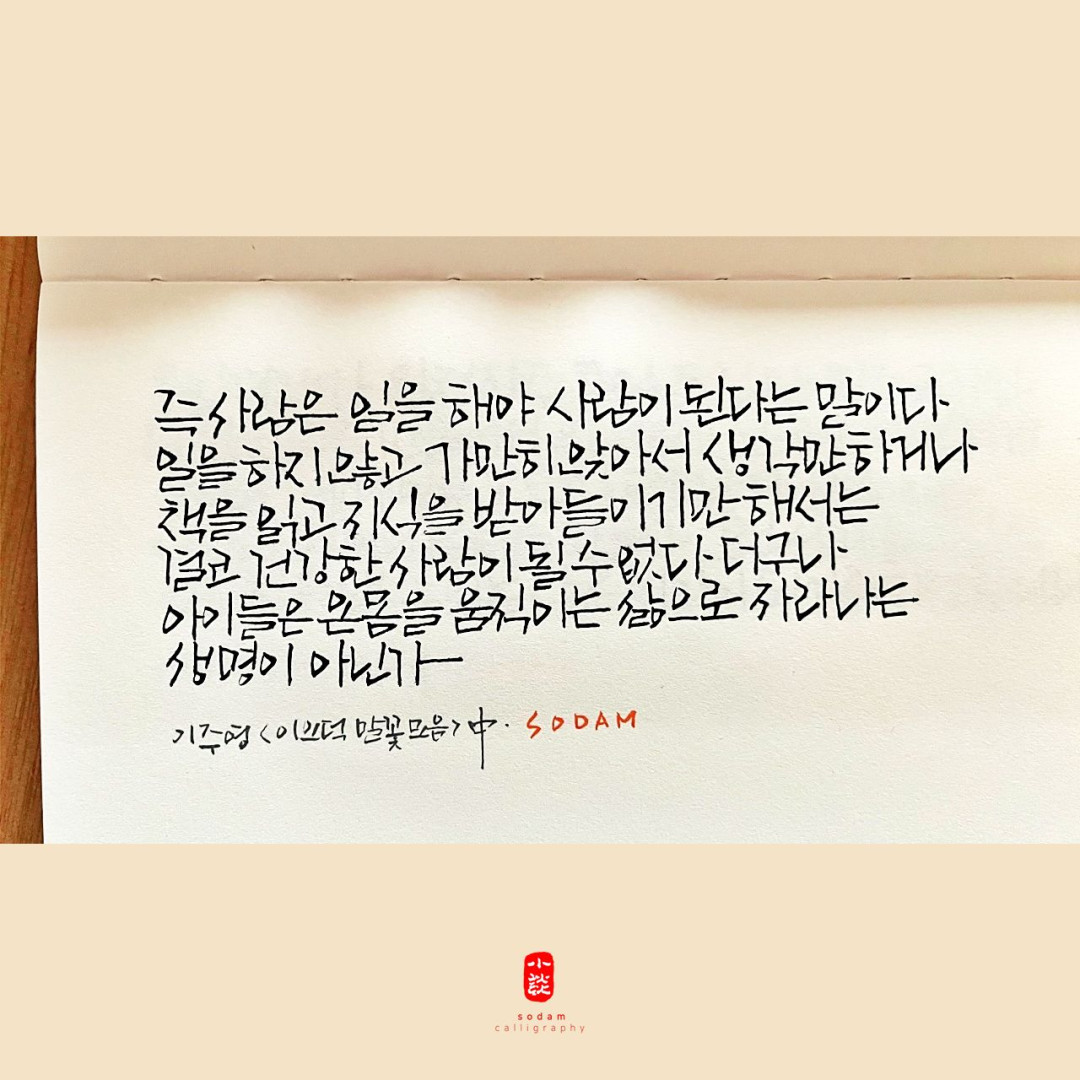 즉 사람은 일을 해야 사람이 된다는 말이다
일을 하지 않고 가만히 앉아서 생각만 하거나
책을 읽고 지식을 받아들이기만 해서는
결코 건강한 사람이 될 수 없다 더구나
아이들은 온몸을 움직이는 삶으로 자라나는
생명이 아닌가
기주영 <이오덕 말꽃모음> 中. SODAM
小談
sodam
calligraphy